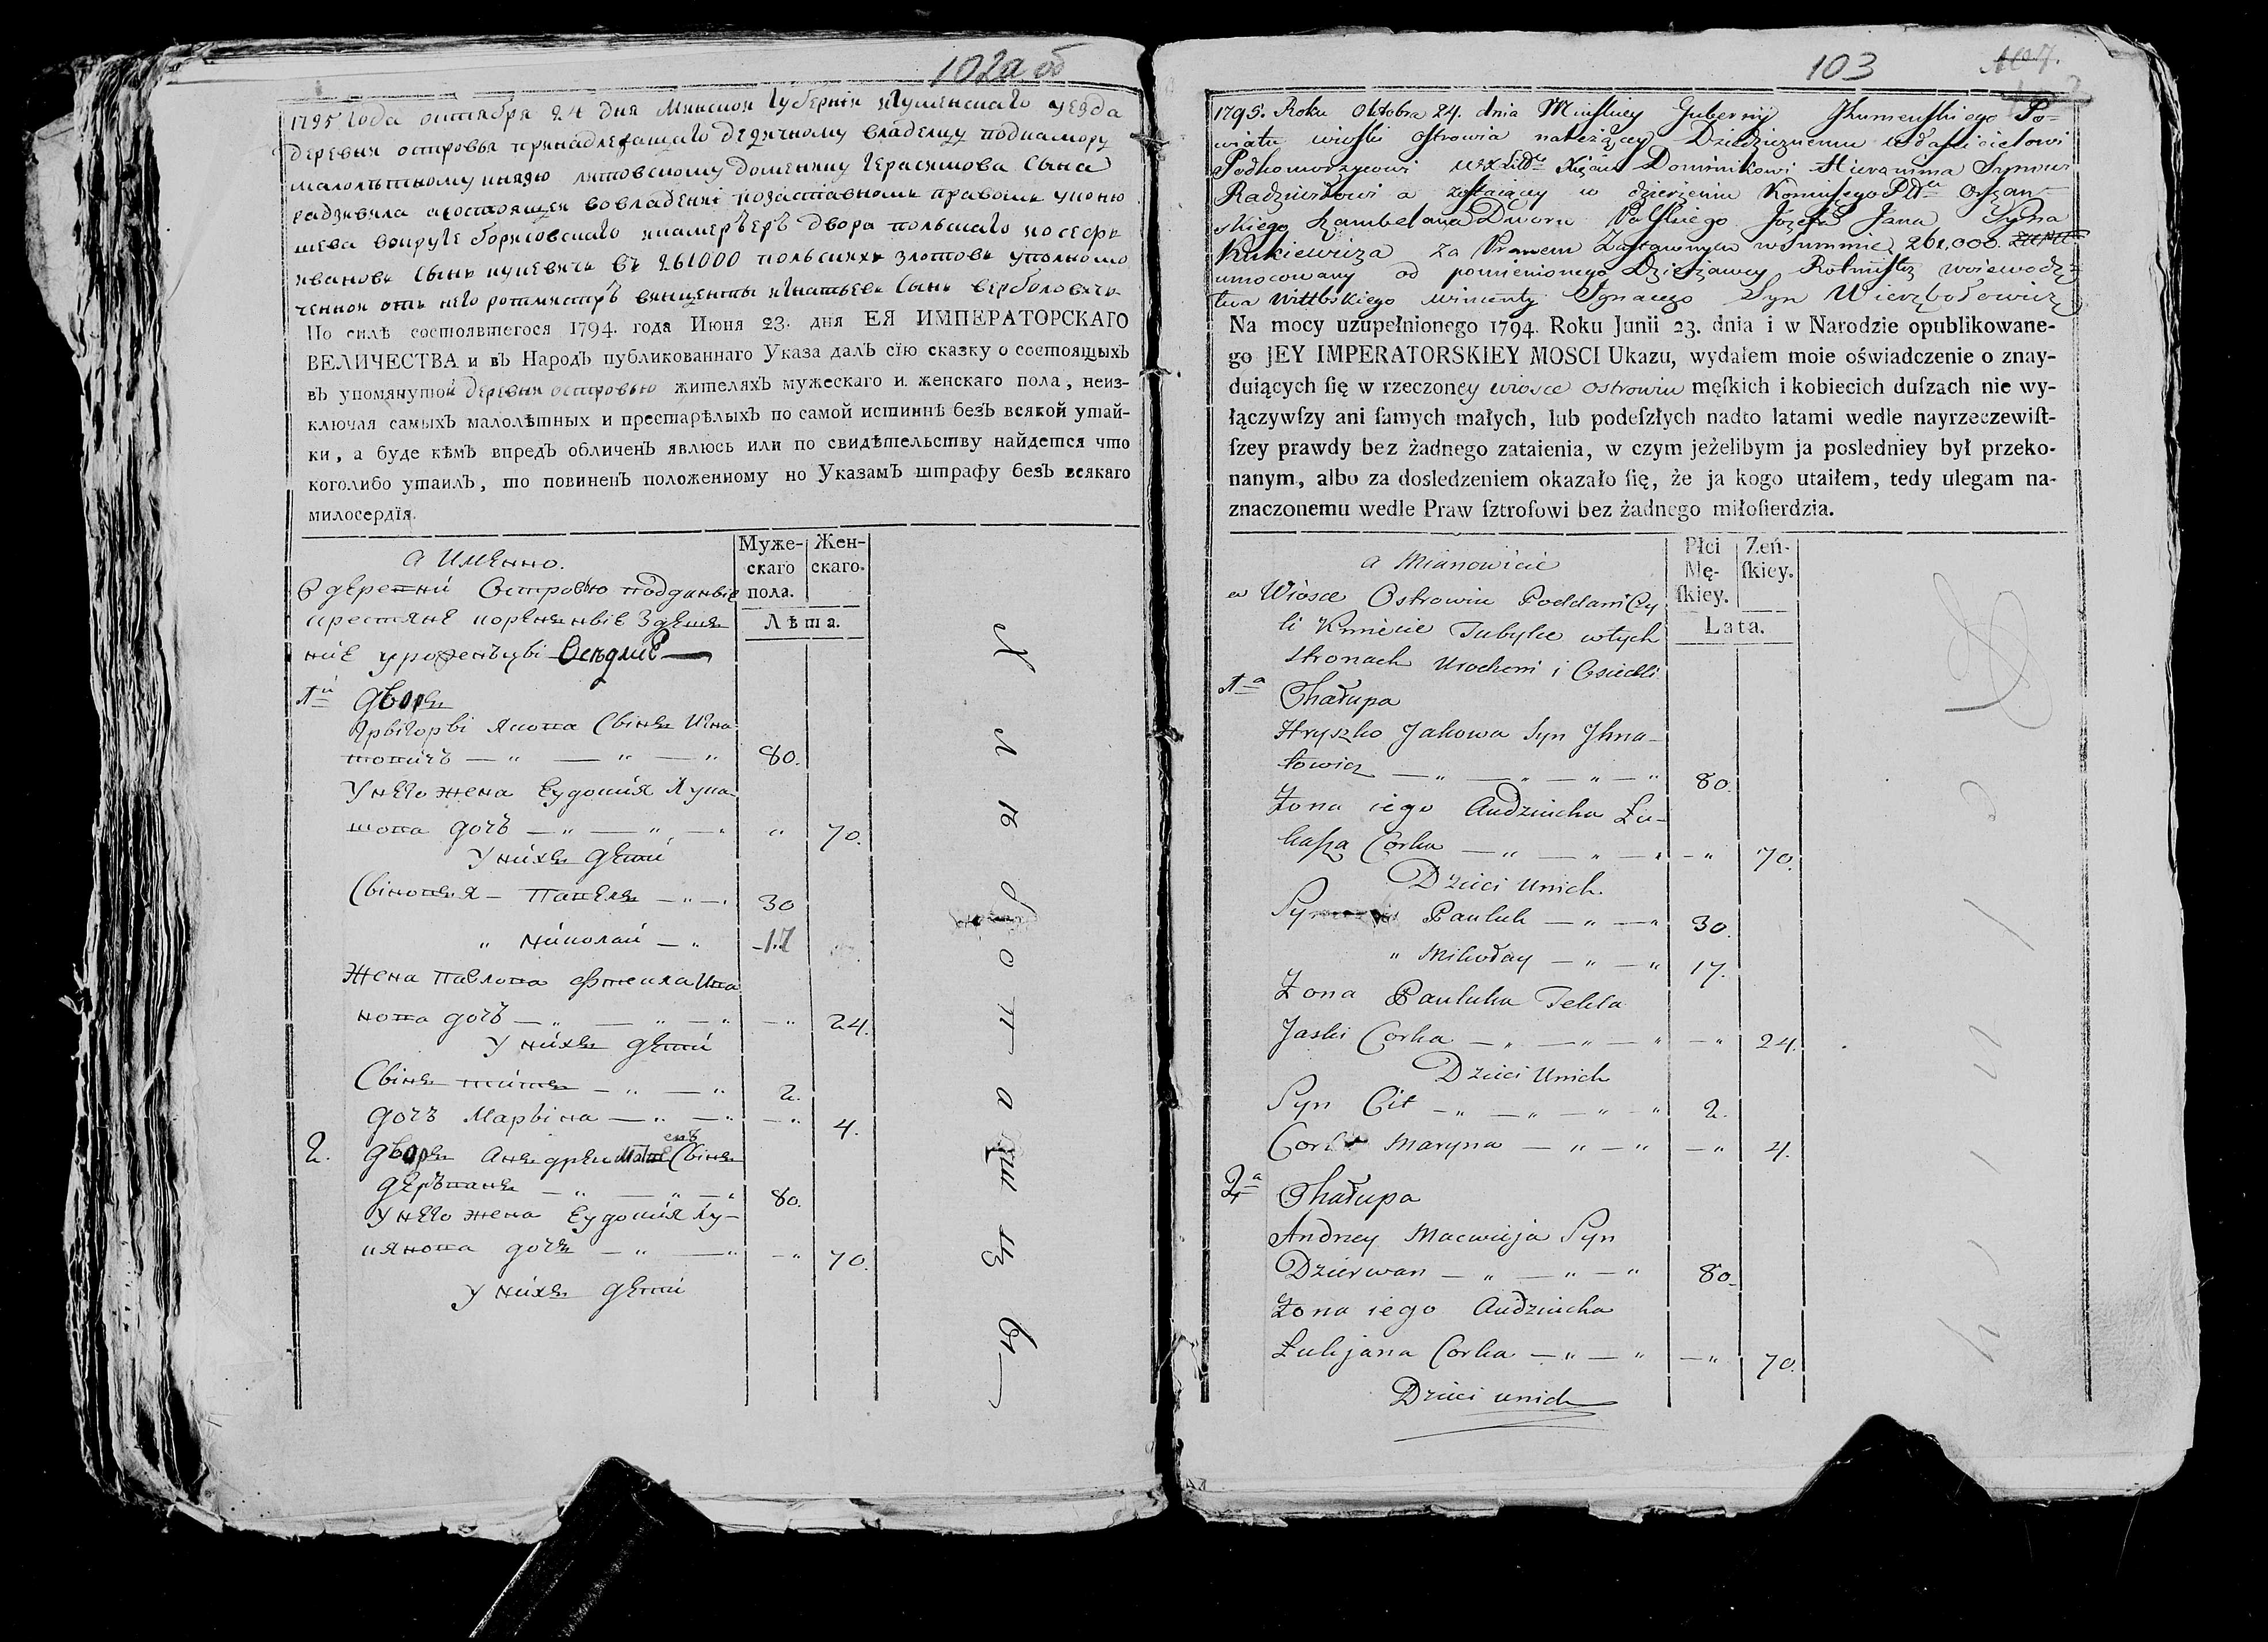 102а об
1795 года октября 24 дня Минской губернии игуменскаго уезда
деревни островья принадлежащаго дедичному владелцу подкамору
малолетному князю литовскому доменику герасимова сына
радзивила а состоящей во владении по заставному правом у коню
шева вокруге борисовскаго камерЪерЪ двора польскаго иосефи
иванови сынь куцевичь вЪ 261000 польскихъ злотовь уполномо
ченной отъ него ротмистрЪ винценты игнатьеви сынь верболовичь
По силѣ состоявшегося 1794. года Июня 23. дня ЕЯ ИМПЕРАТОРСКАГО
ВЕЛИЧЕСТВА и вЪ НародЪ публикованнаго Указа далЪ сїю сказку о состоящыхЪ
вЪ упомянутой деревни островью жителяхЪ мужескаго и женскаго пола, неиз-
ключая самыхЪ малолѣтныхЪ и престарѣлыхЪ по самой истиннѣ безЪ всякой утай-
ки, а буде кѣмЪ впредЪ обличенЪ явлюсь или по свидѣтельству найдется что
коголибо утаилЪ, то повиненЪ положенному по УказамЪ штрафу безЪ всякаго
милосердїя.
а имянно.
Муже-скаго пола.
Жен-скаго.
Лѣта.
в деревни Островю подданые
крестяне кореняные здешя
ние уроженъцы Оседлые
1й дворъ
Грыгоры Якова Сынъ Игна
товичъ — " — " — " 80.
У него жена Еудокия Лука
шова дочъ — " — " — " " 70.
У нихъ дети
Сыновья – Павелъ — " — 30
" николай — " 17
Жена Павлова фтекла Ива
нова дочъ — " — " — " — " 24.
У нихъ дети
Сынъ титъ — " — " 2.
дочъ Марына — " — " — " 4.
2. дворъ Анъдрей Матвеевъ Сынъ
деръванъ — " — " — " 80.
У него жена Еудокия Лу-
кянова дочъ — " — " — " 70.
У нихъ дети
103
1795. Roku Oktobra 24. dnia Minskiey Gubernij Jhumenskiego Po-
wiatu wioski Ostrowia należącey Dziedzicznemu władacicielowi
Podkomorzycowi WXLitte Xięciu Dominikowi Hieronima Synowi
Radziwiłłowi a zostaiącey w dzierżeniu Konniusego Pttu Orszan-
skiego Szambelana Dworu Polskiego Jozefa Jana Syna
Kukiewicza za Prawem Zastawnym w Summie 261,000.
umocowany od pomienionego Dzierżawcy Rotmistrz woiewodz-
twa Wittbskiego wincenty Ignacego Syn Wierzbołowicz
Na mocy uzupełnionego 1794. Roku Junii 23. dnia i w Narodzie opublikowane-
go JEY IMPERATORSKIEY MOSCI Ukazu, wydałem moie oświadczenie o znay-
duiących ſię w rzeczoney wiosce Ostrowiu męſkich i kobiecich duſzach nie wy-
łączywſzy ani ſamych małych, lub podeſzłych nadto latami wedle nayrzeczewiſt-
ſzey prawdy bez żadnego zataienia, w czym jeżelibym ja posledniey był przeko-
nanym, albo za dosledzeniem okazało ſię, że ja kogo utaiłem, tedy ulegam na-
znaczonemu wedle Praw ſztrofowi bez żadnego miłoſierdzia.
a Mianowicie
Płci Mę-ſkiey.
Zeń-ſkiey.
Lata.
w Wiosce Ostrowiu Poddani Czy
li Kmiecie Tubylce w tych
stronach Urodzeni i Osiedli
1a Chałupa
Hryszko Jakowa Syn Jhna-
towicz — " — " — " — " 80.
Żona iego Audziucha Łu-
kasza Corka — " — " — " — " 70.
Dzieci unich.
Syn Pauluk — " — " 30.
" Mikołay — " — " 17.
Żona Pauluka Tekla
Jaski Corka — " — " — " — " 24.
Dzieci Unich
Syn Cit — " — " — " — " 2.
Corka Maryna — " — " — " 4.
2a Chałupa
Andrzey Macwieja Syn
Dzierwan — " — " — " 80.
Żona iego Audziucha
Łukjana Corka — " — " — " 70.
Dzieci unich